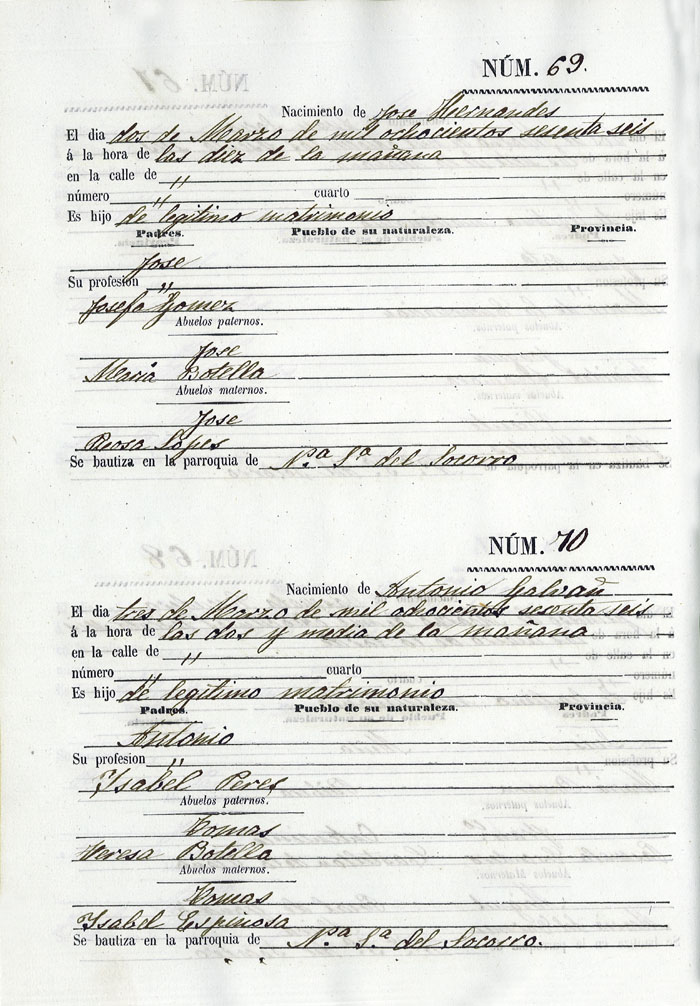 NÚM. 69.
Nacimiento de Jose Hernandes
El dia dos de Marzo de mil ochocientos sesenta seis
á la hora de las diez de la mañana
en la calle de "
número " cuarto
Es hijo de legitimo matrimonio
Padres. Pueblo de su naturaleza. Provincia.
Jose
Su profesion "
Josefa Gomez
Abuelos paternos.
Jose
Maria Botella
Abuelos maternos.
Jose
Rosa Lopes
Se bautiza en la parroquia de N.ª S.ª del Socorro
NÚM. 70
Nacimiento de Antonio Galvañ
El dia tres de Marzo de mil ochocientos sesenta seis
á la hora de las dos y media de la mañana
en la calle de "
número " cuarto
Es hijo de legitimo matrimonio
Padres. Pueblo de su naturaleza. Provincia.
Antonio
Su profesion "
Ysabel Peres
Abuelos paternos.
Tomas
Teresa Botella
Abuelos maternos.
Tomas
Ysabel Espinosa
Se bautiza en la parroquia de N.ª S.ª del Socorro.